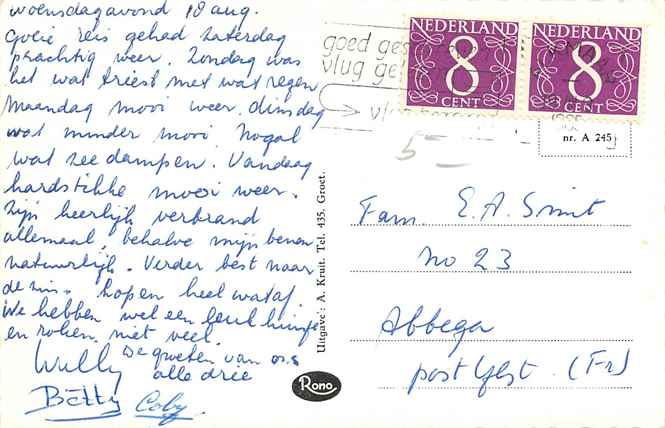 woensdagavond 18 aug.
Goeie reis gehad zaterdag
prachtig weer. Zondag was
het wat triest met wat regen
Maandag mooi weer, dinsdag
wat minder mooi. Nogal
wat zee dampen. Vandaag
hardstikke mooi weer.
Zijn heerlijk verbrand
allemaal, behalve mijn benen
natuurlijk. Verder best naar
de zin. Lopen heel wat af.
We hebben wel een leuk huisje
en roken niet veel.
De groeten van ons
alle drie
Willy
Betty Coby.
goed ges
vlug ge
vl
NEDERLAND NEDERLAND
8 8
CENT CENT
nr. A 245
5-
Fam. E. A. Smit
no 23
Abbega
post Ylst. (Fr)
Uitgave: A. Kruit. Tel. 435. Groet.
Rono